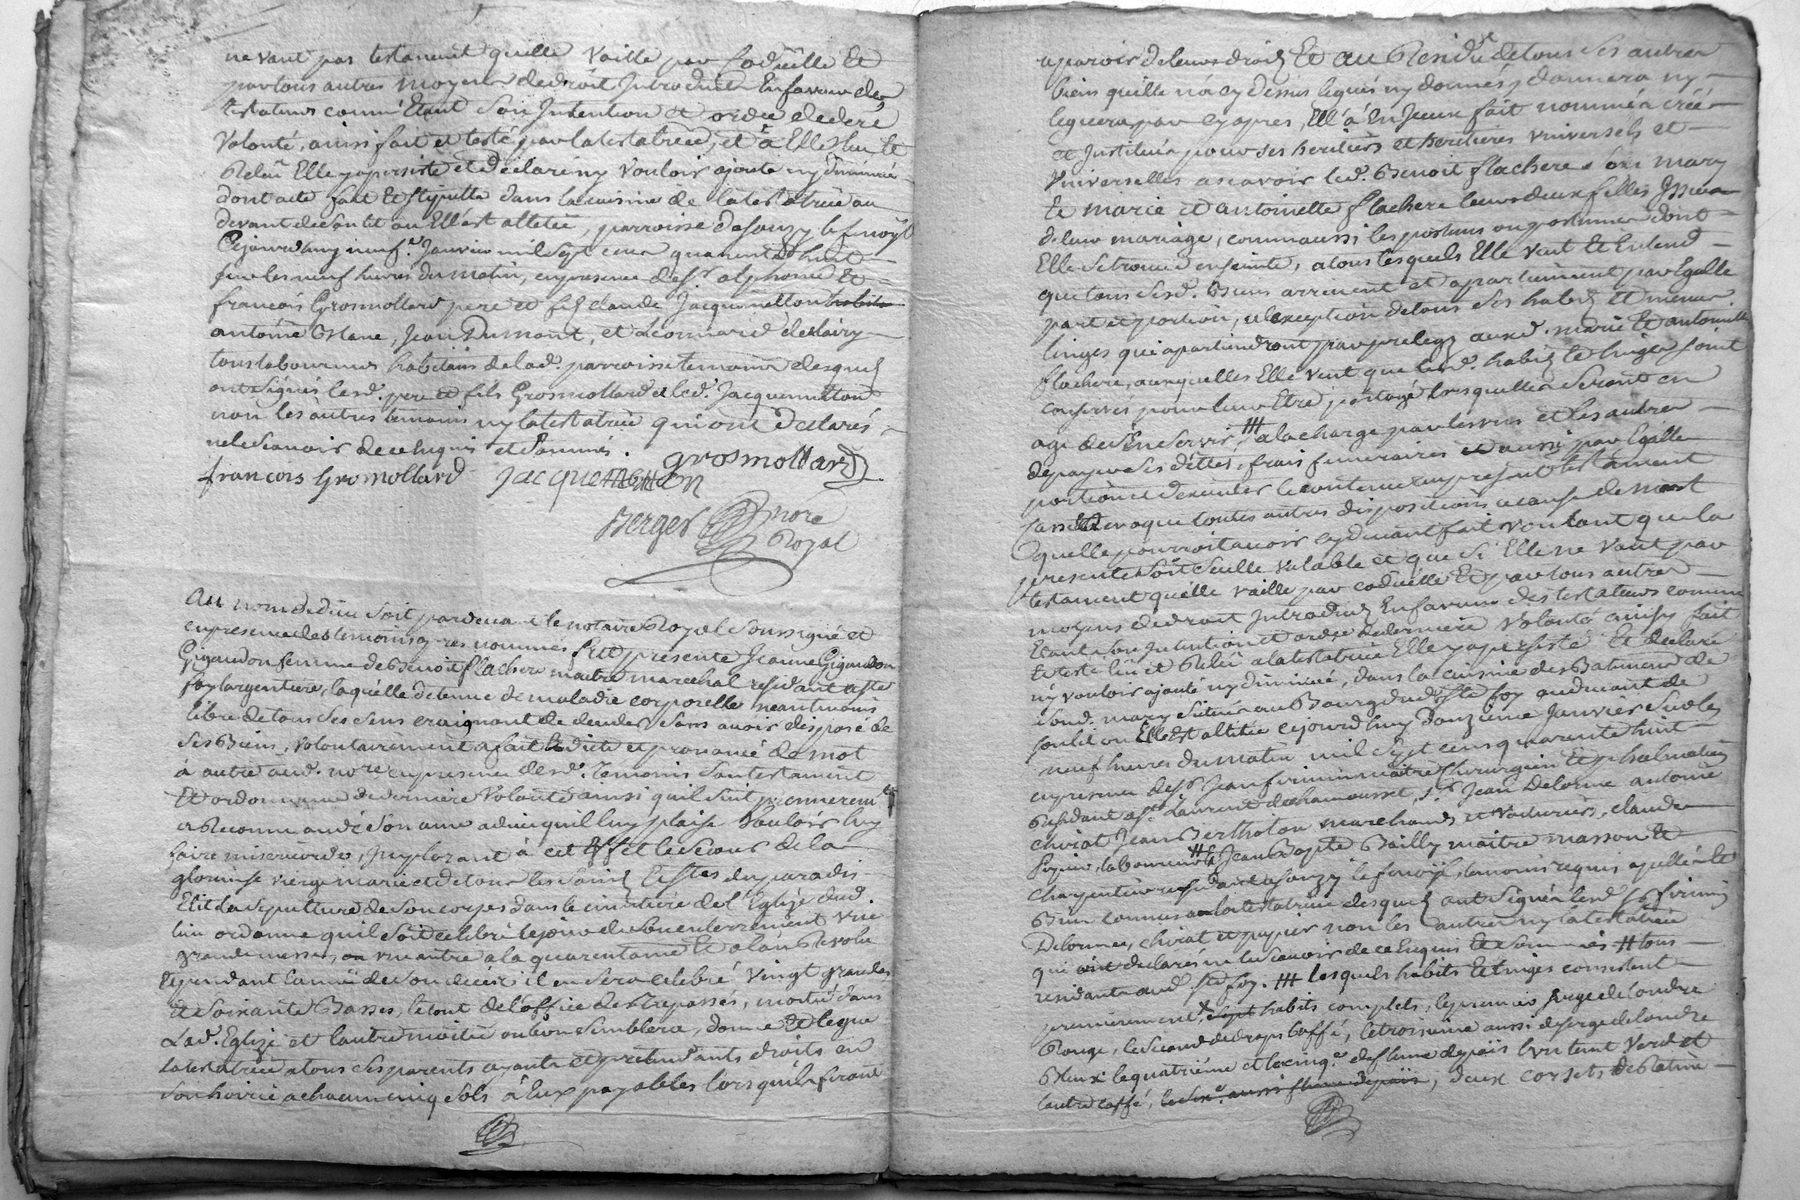 ne vaut pas testament quelle vaille par Codicille et
par tous autres moyens de droit Introduits En faveur des
testateurs comme Etant Son Intention et ordre de dere
Volonté, ainsi fait et testé par la testatrice, et à Elle lu et
Relu Elle y a persisté et Déclaré ny vouloir ajouter ny diminué
dont acte fait et stipullé dans la cuisine de la testatrice au
devant de son lit ou Elle est alittée, parroisse de Souzy
Cejourdhuy neufe. Janvier mil sept cens quarante huit
sur les neuf heures du matin, en presence de sr. alphonse et
francois Grosmollard pere et fils claude Jacquemetton habita
antoine Jean Dumont, et Leonnard
tous laboureurs habitans de lad. parroisse temoins desquels
ont signés lesd. pere et fils Grosmollard et led. Jacquemetton
non les autres temoins ny la testatrice qui ont Declarés
ne le scavoir de ce Enquis et Sommés.
francois Gromollard Jacquemetton grosmollard
Berger nore
Royal
Au nom de dieu soit pardevant le notaire Royal Soussigné et
en presence des temoins apres nommés fut presente Jeanne Gigandon
Gigandon femme de Benoit flachere maitre marechal residant a ste
foy largentiere, laquélle detenue de maladie corporelle neantmoins
libre de tous ses sens craignant de deceder Sans avoir disposé de
Ses Biens, volontairement a fait dicté et prononcé de mot
à autre aud. nore en presence desd. temoins Son testament
Et ordonnance de derniere volonté ainsi quil suit premierement
a Recommandé Son ame a dieu quil luy plaise vouloir luy
faire misericorde, Implorant à cet Effet le Secours de la
glorieuse vierge marie et de tous les Saints Celestes du paradis
Elit la Sepulture de Son corps dans le cimetiere de l'Eglize dud.
lieu ordonne quil Soit celebré le jour de Son enterrement une
grande messe, une autre a la quarantaine et a lan Revolu
Et pendant l'année de Son decès il en Sera celebré vingt grandes
et Soixante Basses, le tout de l'office des trepassés, moitié dans
Lad. Eglize et lautre moitié ou bon Semblera, donne et legue
la testatrice a tous ses parents ayants et pretendants droits en
Son hoirie a chacun cinq Sols à Eux payables lors quils feront
aparoir de leurs droits Et au Residu de tous Ses autres
biens quelle n'a cy dessus legués ny donnés, donnera ny
leguera par cy apres, Ell'à En Iceux fait nommé a créé
et Institué pour ses heritiers et heritieres universels et
universelles a scavoir led. Benoit flachere Son mary
Et marie et antoinette flachere leurs deux filles Issues
de leur mariage, comm'aussi les postums ou postumes dont
Elle Se trouve enceinte, a tous lesquels Elle veut et Entend
que tous sesd. Biens arrivent et apartiennent par Egalle
part et portion, a l'exception de tous Ses habits et menus
linges qui apartiendront par prelegs auxd. marie et antoinette
flachere, auxquelles Elle veut que lesd. habits et linges soint
conservés pour leur Etre partagé lors quelles Seront en
age de Sen Servir, # a la charge par les uns et les autres
de payer Ses dettes, frais funeraires et aussi par Egalle
portion et dexecuter le contenu en present testament
casse revoque toutes autres dispositions a cause de mort
quelle pourroit avoir cy devant fait voulant que la
presente Soit Seulle valable et que Si Elle ne vaut par
testament quélle vaille par codicille Et par tous autres
moyens de droit Introduits En faveur des testateurs comme
Etant son Intention et ordre de derniere volonté ainsy fait
Et testé lu et Relu a la testatrice Elle y a persisté Et declaré
ny vouloir ajouté ny diminué, dans la cuisine des Batiments de
Sond. mary situés au Bourg dud. ste foy audevant de
Son lit ou Elle Est alittée cejourdhuy Douzieme Janvier sur les
neuf heures du matin mil sept cens quarante huit
en presence de sr Jean firmin maitre chirurgien
Residant a st Laurent de chamousset, sr Jean Delorme antoine
chirat Jean Bertholon marchands et voituriers, claude
Papier, laboureur # Jean Bapte Bailly maitre masson Et
charpentier residant a Souzy temoins requis apellés Et
Bien connus a la testatrice desquels ont Signé lesd. sr firmin
Delorme, chirat et papier non les autres ny la testatrice
qui ont declarés ne le scavoir de ce Enquis et Sommés # tous
residants aud. ste foy. # lesquels habits Et linges consistent
premierement habits complets, le premier serge de londre
Rouge, le Second de drap Caffé, le troisieme aussi de serge de londre
Bleux le quatrieme et le cinqe de lun teint verd et
lautre caffé, le Sixe. aussi, deux corsets de Ratine